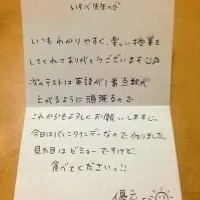 いそべ先生へ
いつもわかりやすく、楽しい授業を
してくれてありがとうございます
次のテストは英語が1番点数が
上がるように頑張るので
これからもよろしくお願いします
今日はバレンタインデーなので作りました。
見た目はビミョーですけど
食べてくださいっ!!